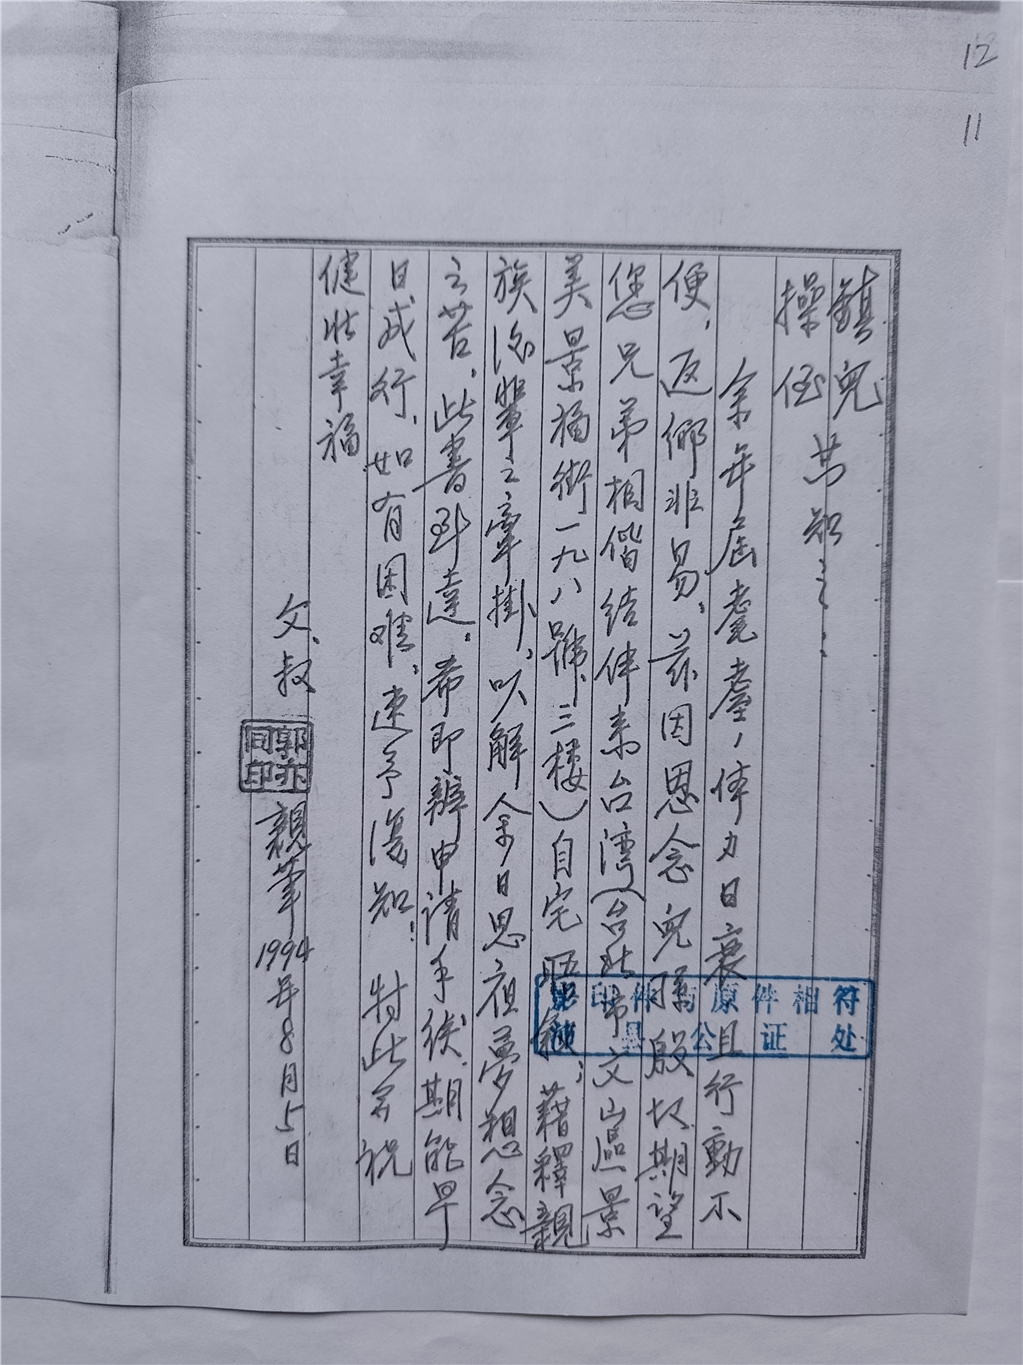 12
11
鎮兒
操侄 共知之：
余年屆耄耋，体力日衰且行動不
便，返鄉非易，茲因思念兒孫殷切期望
您兄弟相偕结伴来台湾（台北市文山區景
美景福街一九八號三楼）自宅晤叙，藉釋親
族後輩之牽掛，以解余日思夜夢想念
之苦，此書到達，希即辦申请手续，期能早
日成行，如有困难，速予復知！特此并祝
健壮幸福
父、叔
郭亦同印
親筆 1994年8月5日
影印件与原件相符
县公证处